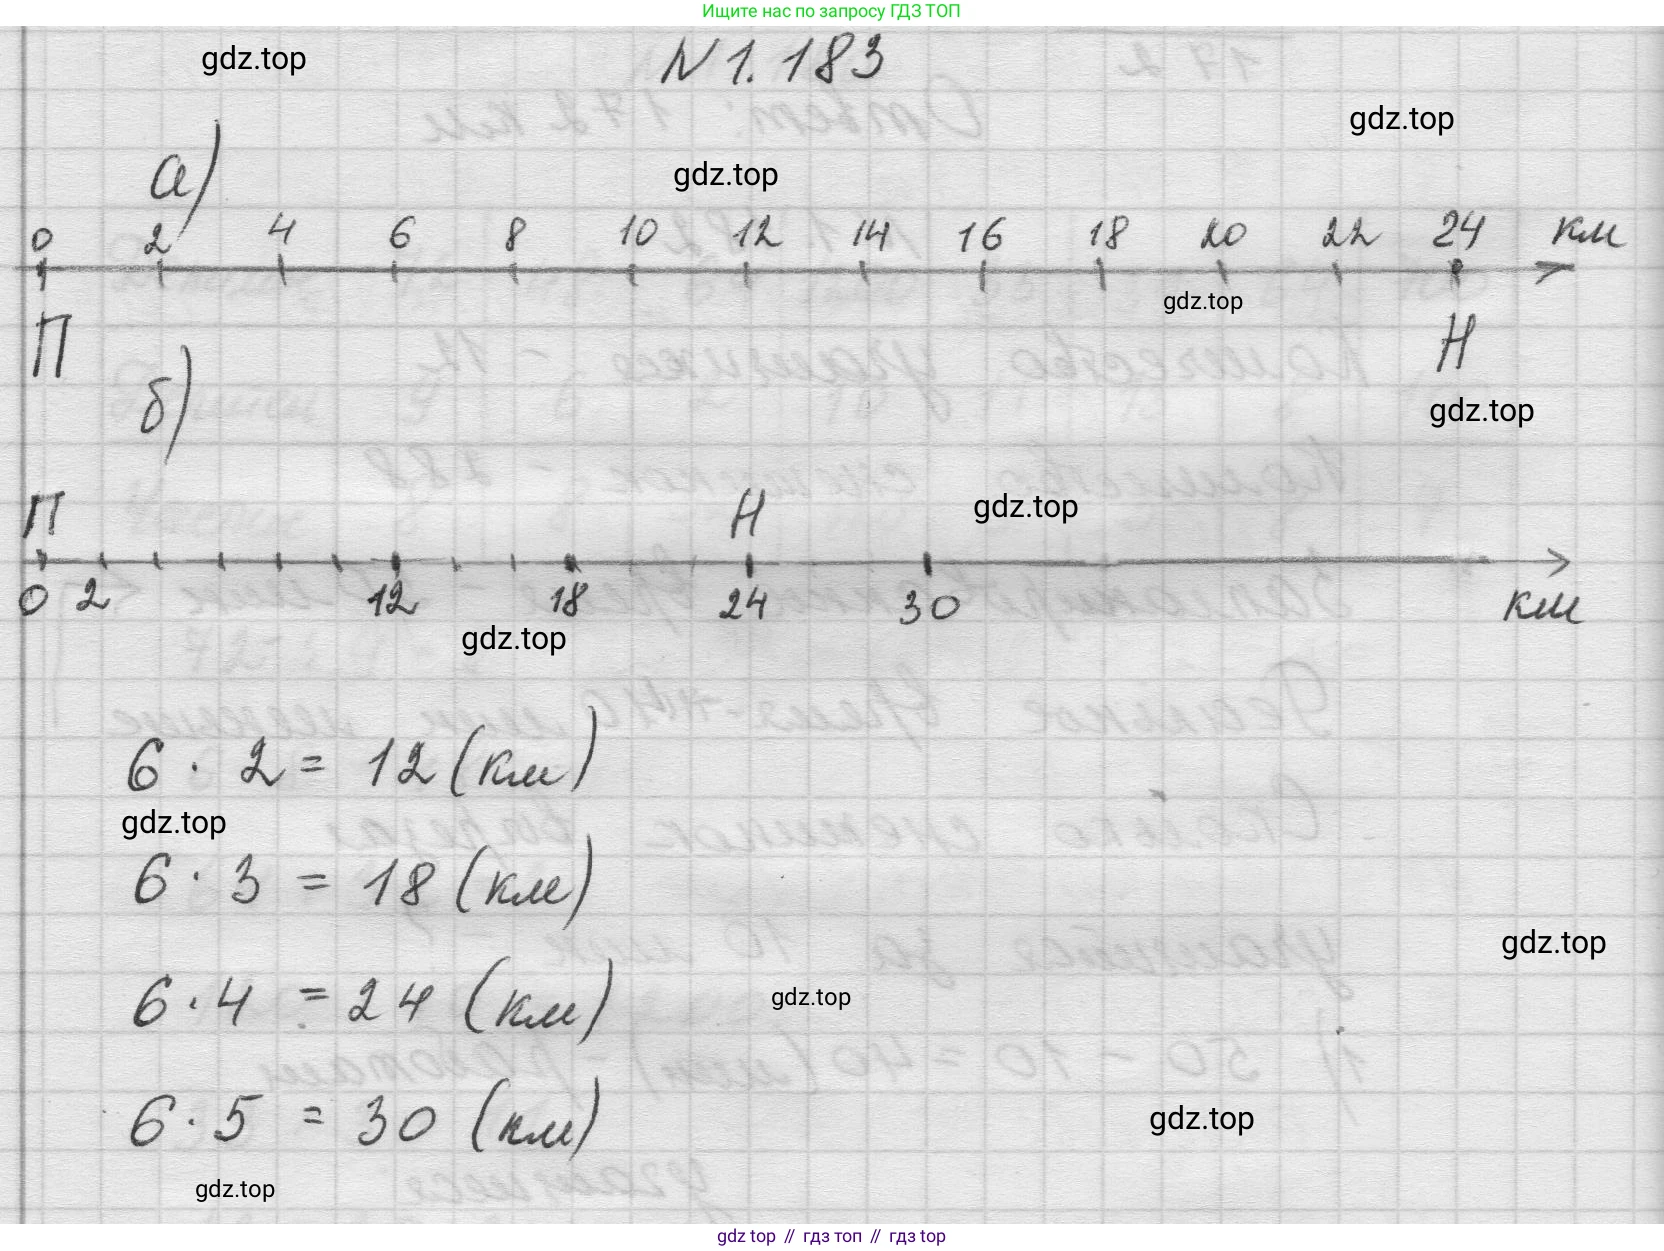 Ищите нас по запросу ГДЗ ТОП
gdz.top
N 1.183
gdz.top
gdz.top
а)
0 2 4 6 8 10 12 14 16 18 20 22 24 км
gdz.top
П Н
б)
gdz.top
П Н
gdz.top
0 2 12 18 24 30 км
gdz.top
6 · 2 = 12 (км)
gdz.top
6 · 3 = 18 (км)
gdz.top
6 · 4 = 24 (км)
gdz.top
6 · 5 = 30 (км)
gdz.top
gdz.top
gdz top // гдз топ // гдз top